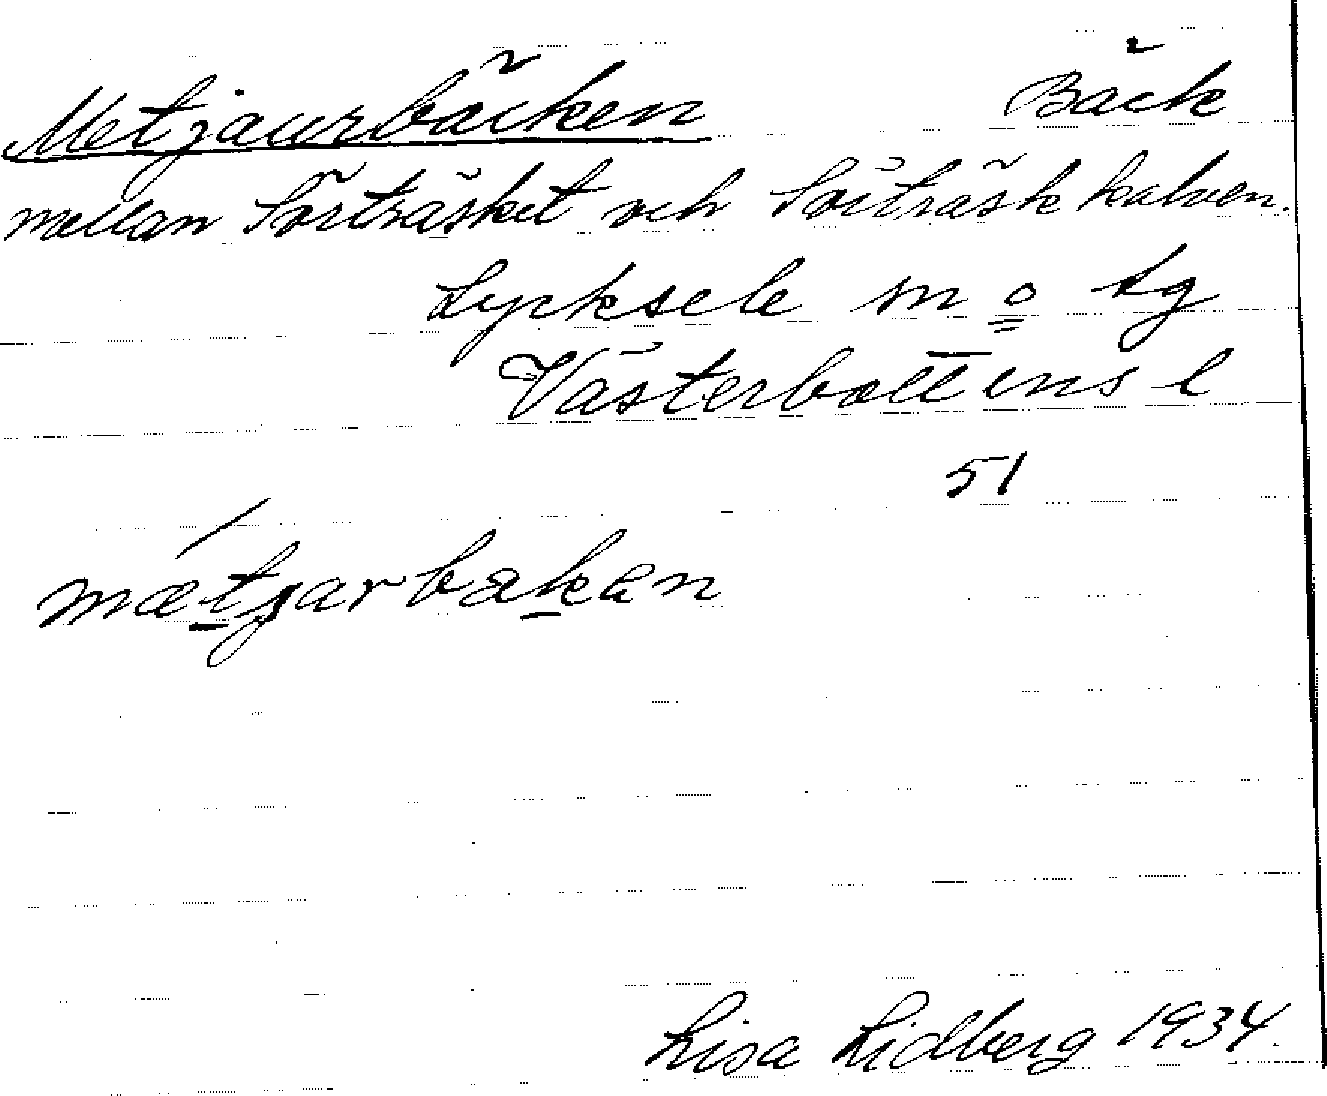 Metjaurbäcken Bäck
mellan Sörträsket och Sörträskkalven.
Lycksele m o tg
Västerbottens l
51
mætjarbækæn
Lisa Lidberg 1934.